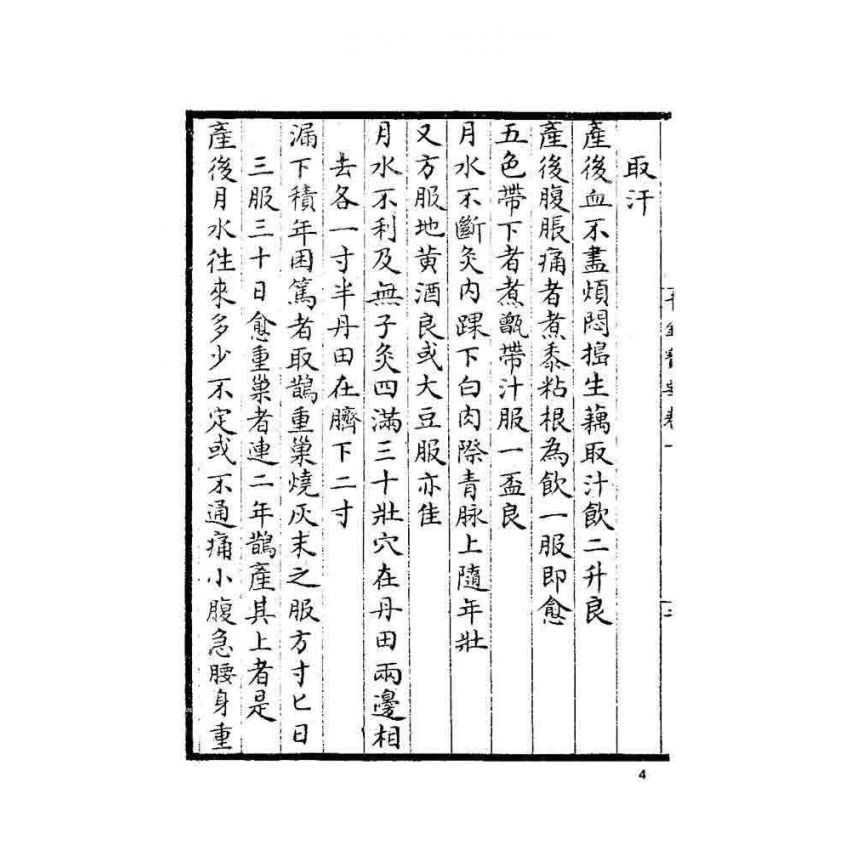 取汗
產後血不盡煩悶搗生藕取汁飲二升良
產後腹脹痛者煮黍粘根為飲一服即愈
五色帶下者煮甑帶汁服一盃良
月水不斷灸内踝下白肉際青脉上隨年壯
又方服地黄酒良或大豆服亦佳
月水不利及無子灸四滿三十壯穴在丹田兩邊相
去各一寸半丹田在臍下二寸
漏下積年困篤者取鵲重巢燒灰末之服方寸匕日
三服三十日愈重巢者連二年鵲產其上者是
產後月水往來多少不定或不通痛小腹急腰身重
4